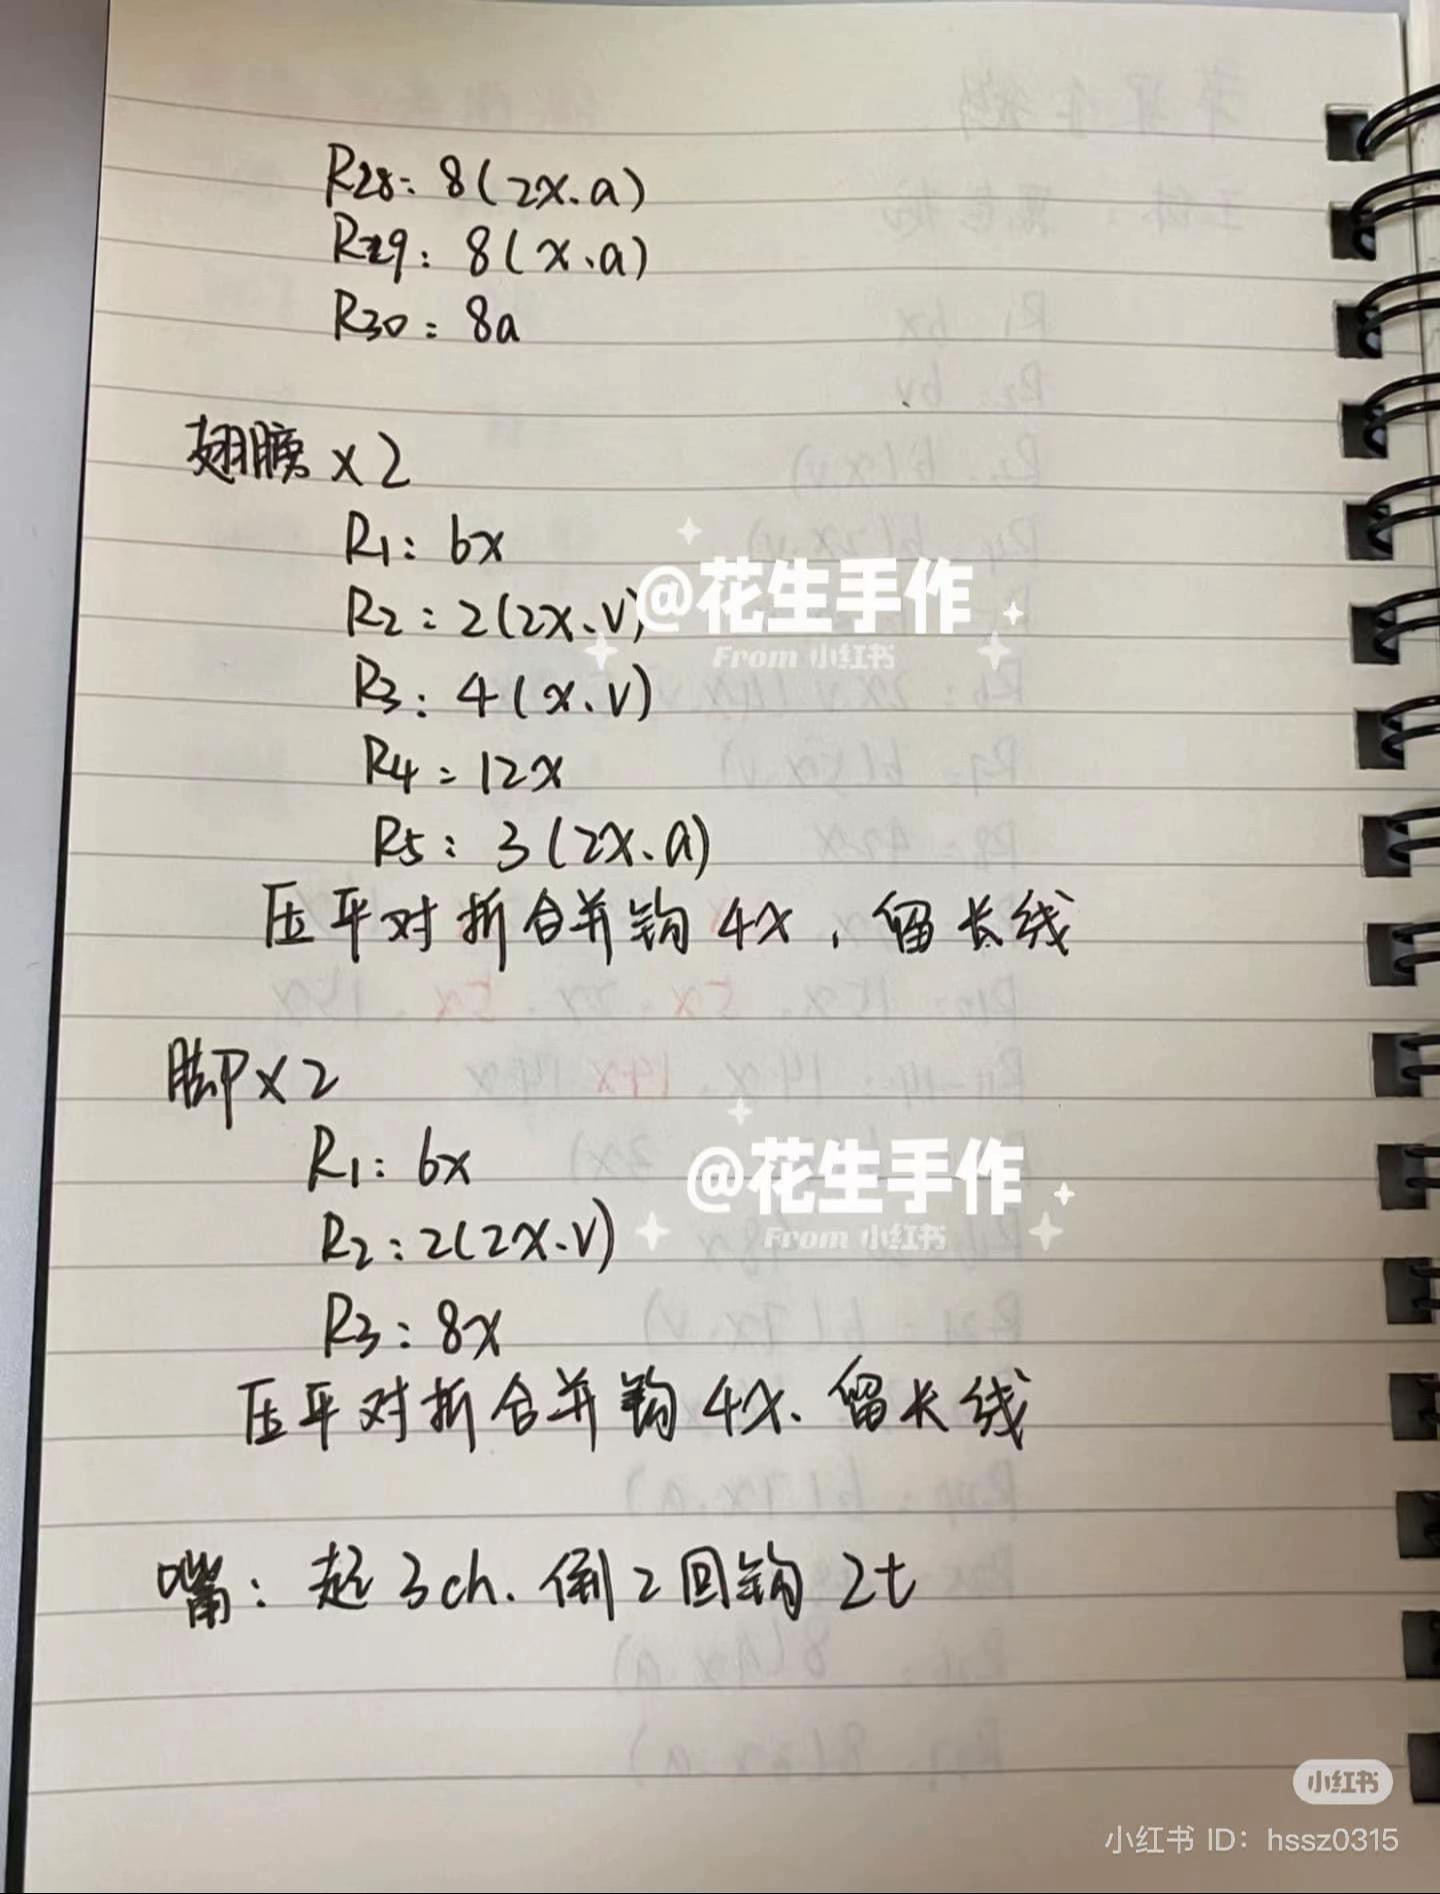 R28: 8(2x.a)
R29: 8(x.a)
R30: 8a
翅膀 x2
R1: 6x
R2: 2(2x.v)
@花生手作
From 小红书
R3: 4(x.v)
R4: 12x
R5: 3(2x.a)
压平对折合并钩4x,留长线
脚 x2
R1: 6x
@花生手作
From 小红书
R2: 2(2x.v)
R3: 8x
压平对折合并钩4x.留长线
嘴: 起3ch.倒2回钩2t
小红书
小红书 ID: hssz0315